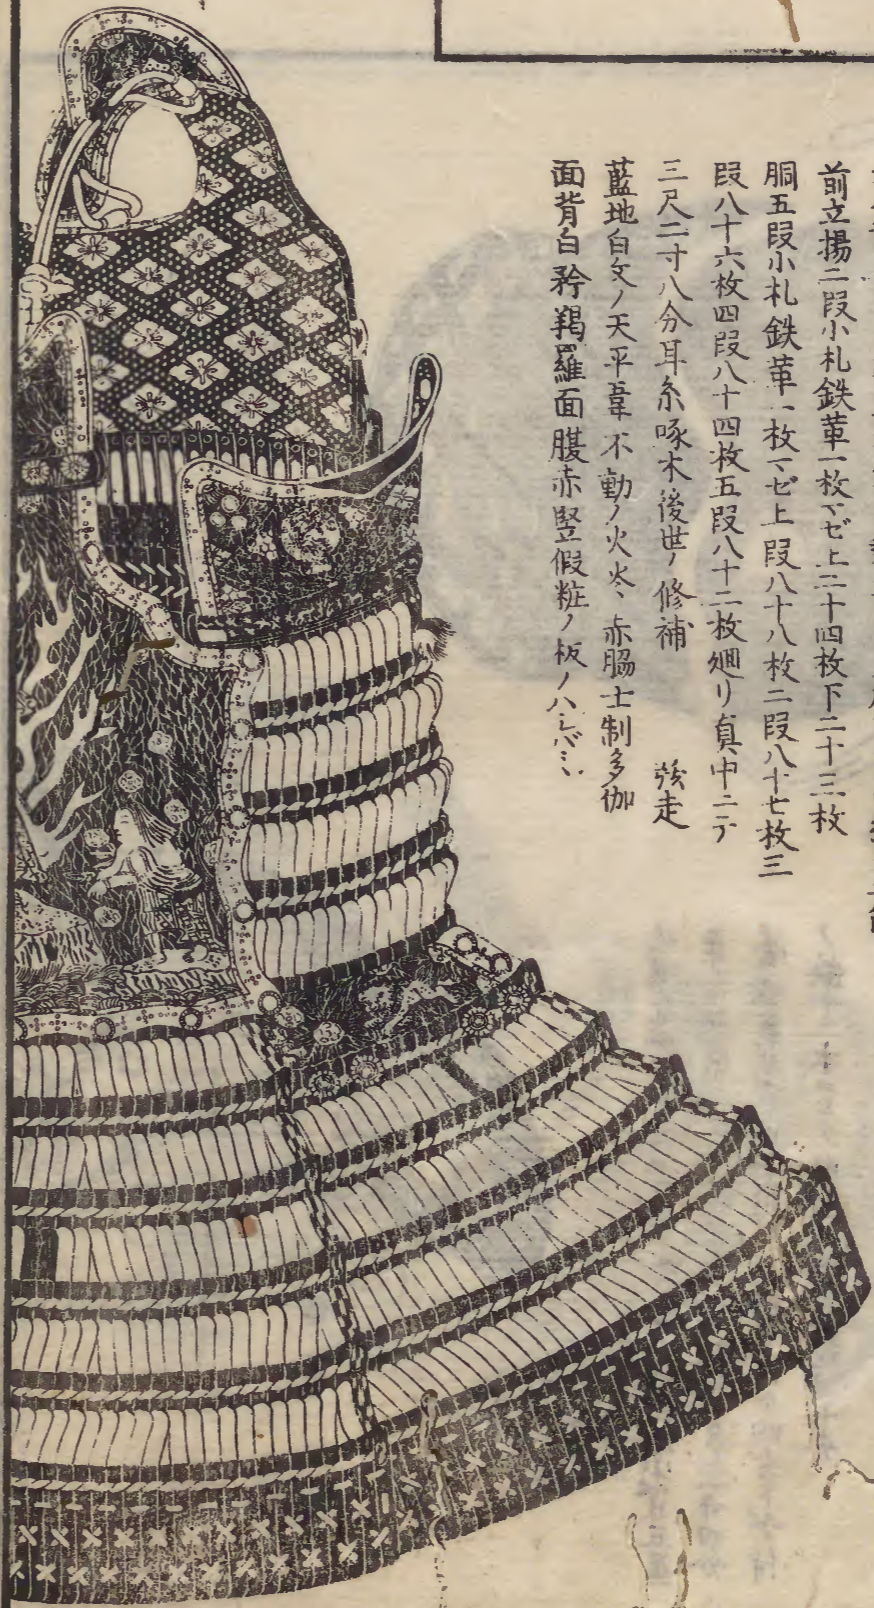 前立揚二段小札鉄革一枚マゼ上二十四枚下二十三枚
胴五段小札鉄革一枚マゼ上段八十八枚二段八十七枚三
段八十六枚四段八十四枚五段八十二枚廻リ真中ニテ
三尺二寸八分耳糸啄木後世ノ修補 弦走
藍地白文ノ天平韋不動ノ火炎、赤脇士制多伽
面背白矜羯羅面腹赤竪假粧ノ板ノ